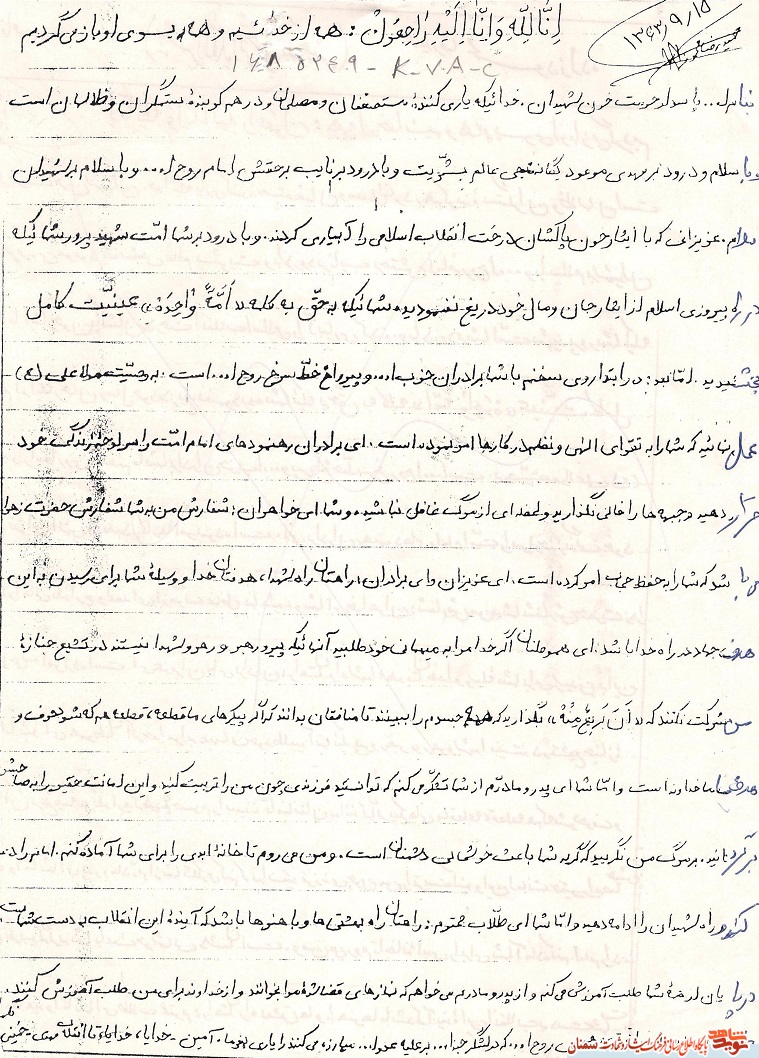 ۱۳۶۳/۹/۱۵
اِنّا لِلّهِ وَ اِنّا اِلَیْهِ راجِعُونْ: همه از خدائیم و همه بسوی او باز می‌گردیم
بنام الله پاسدار حرمت خون شهیدان. خدائیکه یاری کنندهٔ مستضعفان و مصلحان و در هم کوبندهٔ ستمگران و ظالمان است
و با سلام و درود بر مهدی موعود یگانه منجی عالم بشریّت و با درود بر نایب بر حقش امام روح الله و با سلام بر شهیدان
اسلام. عزیزانی که با ایثار خون پاکشان درخت انقلاب اسلامی را آبیاری کردند. و با درود بر شما امّت شهید پرور شمائیکه
در راه پیروزی اسلام از ایثار جان و مال خود دریغ ننمودید. شمائیکه به حقّ به کلمه «اُمَّةً واحِدَةً» عینیّت کامل
بخشیدید. امّا بعد: در ابتدا روی سخنم با شما برادران حزب الله و پیروان خطّ سرخ روح الله است. به وصیّت مولا علی (ع)
عمل نمائید که شما را به تقوای الهی و نظم در کارها امر نموده است. ای برادران رهنمودهای امام امّت را سرلوحهٔ زندگی خود
قرار دهید و جبهه‌ها را خالی نگذارید و لحظه‌ای از مرگ غافل نباشید. و شما ای خواهران: سفارش من به شما سفارش حضرت زهرا
می باشد که شما را به حفظ حجاب امر کرده است. ای عزیزان و ای برادران، راهتان راه شهدا، هدفتان خدا و وسیلهٔ شما برای رسیدن به این
هدف جهاد در راه خدا باشد. ای هموطنان اگر خدا مرا به میهمانی خود طلبید آنهائیکه پیرو رهبر و رهرو شهدا نیستند در تشییع جنازهٔ
من شرکت نکنند که بگذارید که همه جسدم را ببینند تا منافقان بدانند که اگر پیکرهای ما قطعه، قطعه هم که شود حرف و
هدف ما خداوند است و امّا شما ای پدر و مادرم از شما تشکّر می‌کنم که توانستید فرزندی چون من را تربیت کنید و این امانت حقیر را به صاحبش
برگردانید. بر مرگ من نگریید که گریه شما باعث خوشحالی دشمنان است. و من می روم تا خانهٔ ابدی را برای شما آماده کنم. امام را دعا
کنید و راه شهیدان را ادامه دهید و امّا شما ای طلّاب محترم: راهتان راه بهشتی‌ها و باهنرها باشد که آیندهٔ این انقلاب بدست شماست
در پایان از همهٔ شما طلب آمرزش می‌کنم و از پدر و مادرم می‌خواهم که نمازهای قضا شدهٔ مرا بخوانند و از خداوند برای من طلب آمرزش کنند.
روح الله که در لشگر خدا بر علیه عدو الله مبارزه می‌کنند را یاری بفرما. آمین - خدایا، خدایا، تا انقلاب مهدی خمینی